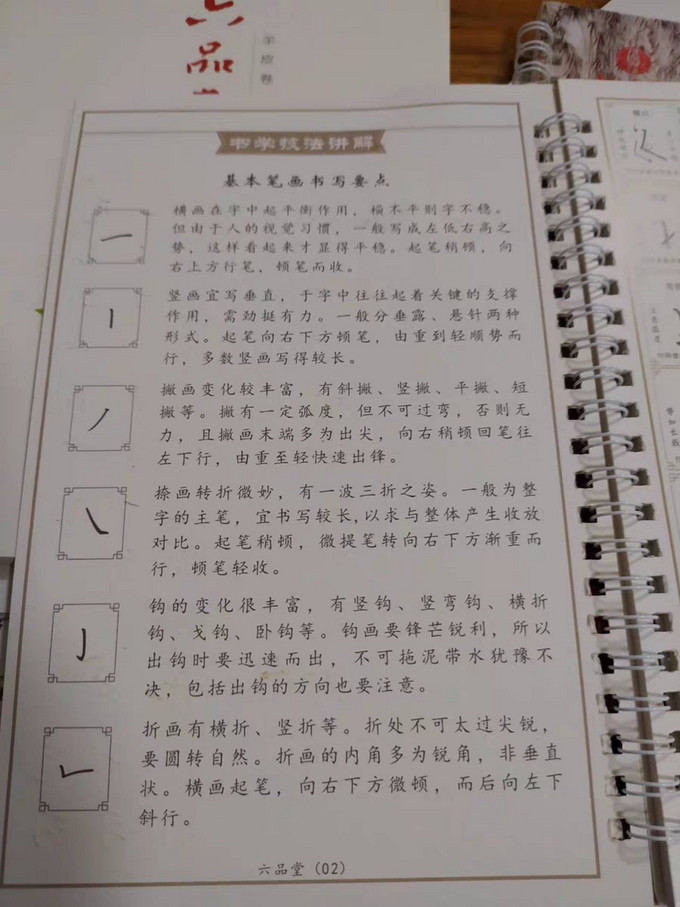 六品
书学技法讲解
基本笔画书写要点
横画在字中起平衡作用，横不平则字不稳。
但由于人的视觉习惯，一般写成左低右高之
势，这样看起来才显得平稳。起笔稍顿，向
右上方行笔，顿笔而收。
竖画宜写垂直，于字中往往起着关键的支撑
作用，需劲挺有力。一般分垂露、悬针两种
形式。起笔向右下方顿笔，由重到轻顺势而
行，多数竖画写得较长。
撇画变化较丰富，有斜撇、竖撇、平撇、短
撇等。撇有一定弧度，但不可过弯，否则无
力，且撇画末端多为出尖，向右稍顿回笔往
左下行，由重至轻快速出锋。
捺画转折微妙，有一波三折之姿。一般为整
字的主笔，宜书写较长，以求与整体产生收放
对比。起笔稍顿，微提笔转向右下方渐重而
行，顿笔轻收。
钩的变化很丰富，有竖钩、竖弯钩、横折
钩、戈钩、卧钩等。钩画要锋芒锐利，所以
出钩时要迅速而出，不可拖泥带水犹豫不
决，包括出钩的方向也要注意。
折画有横折、竖折等。折处不可太过尖锐，
要圆转自然。折画的内角多为锐角，非垂直
状。横画起笔，向右下方微顿，而后向左下
斜行。
六品堂（02）